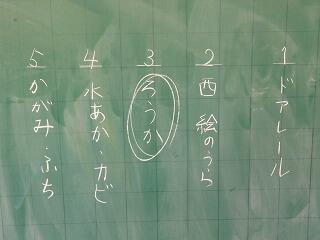 1 ドアレール
2 西 絵のうら
3 ろうか
4 水あか・カビ
5 かがみ・ふち